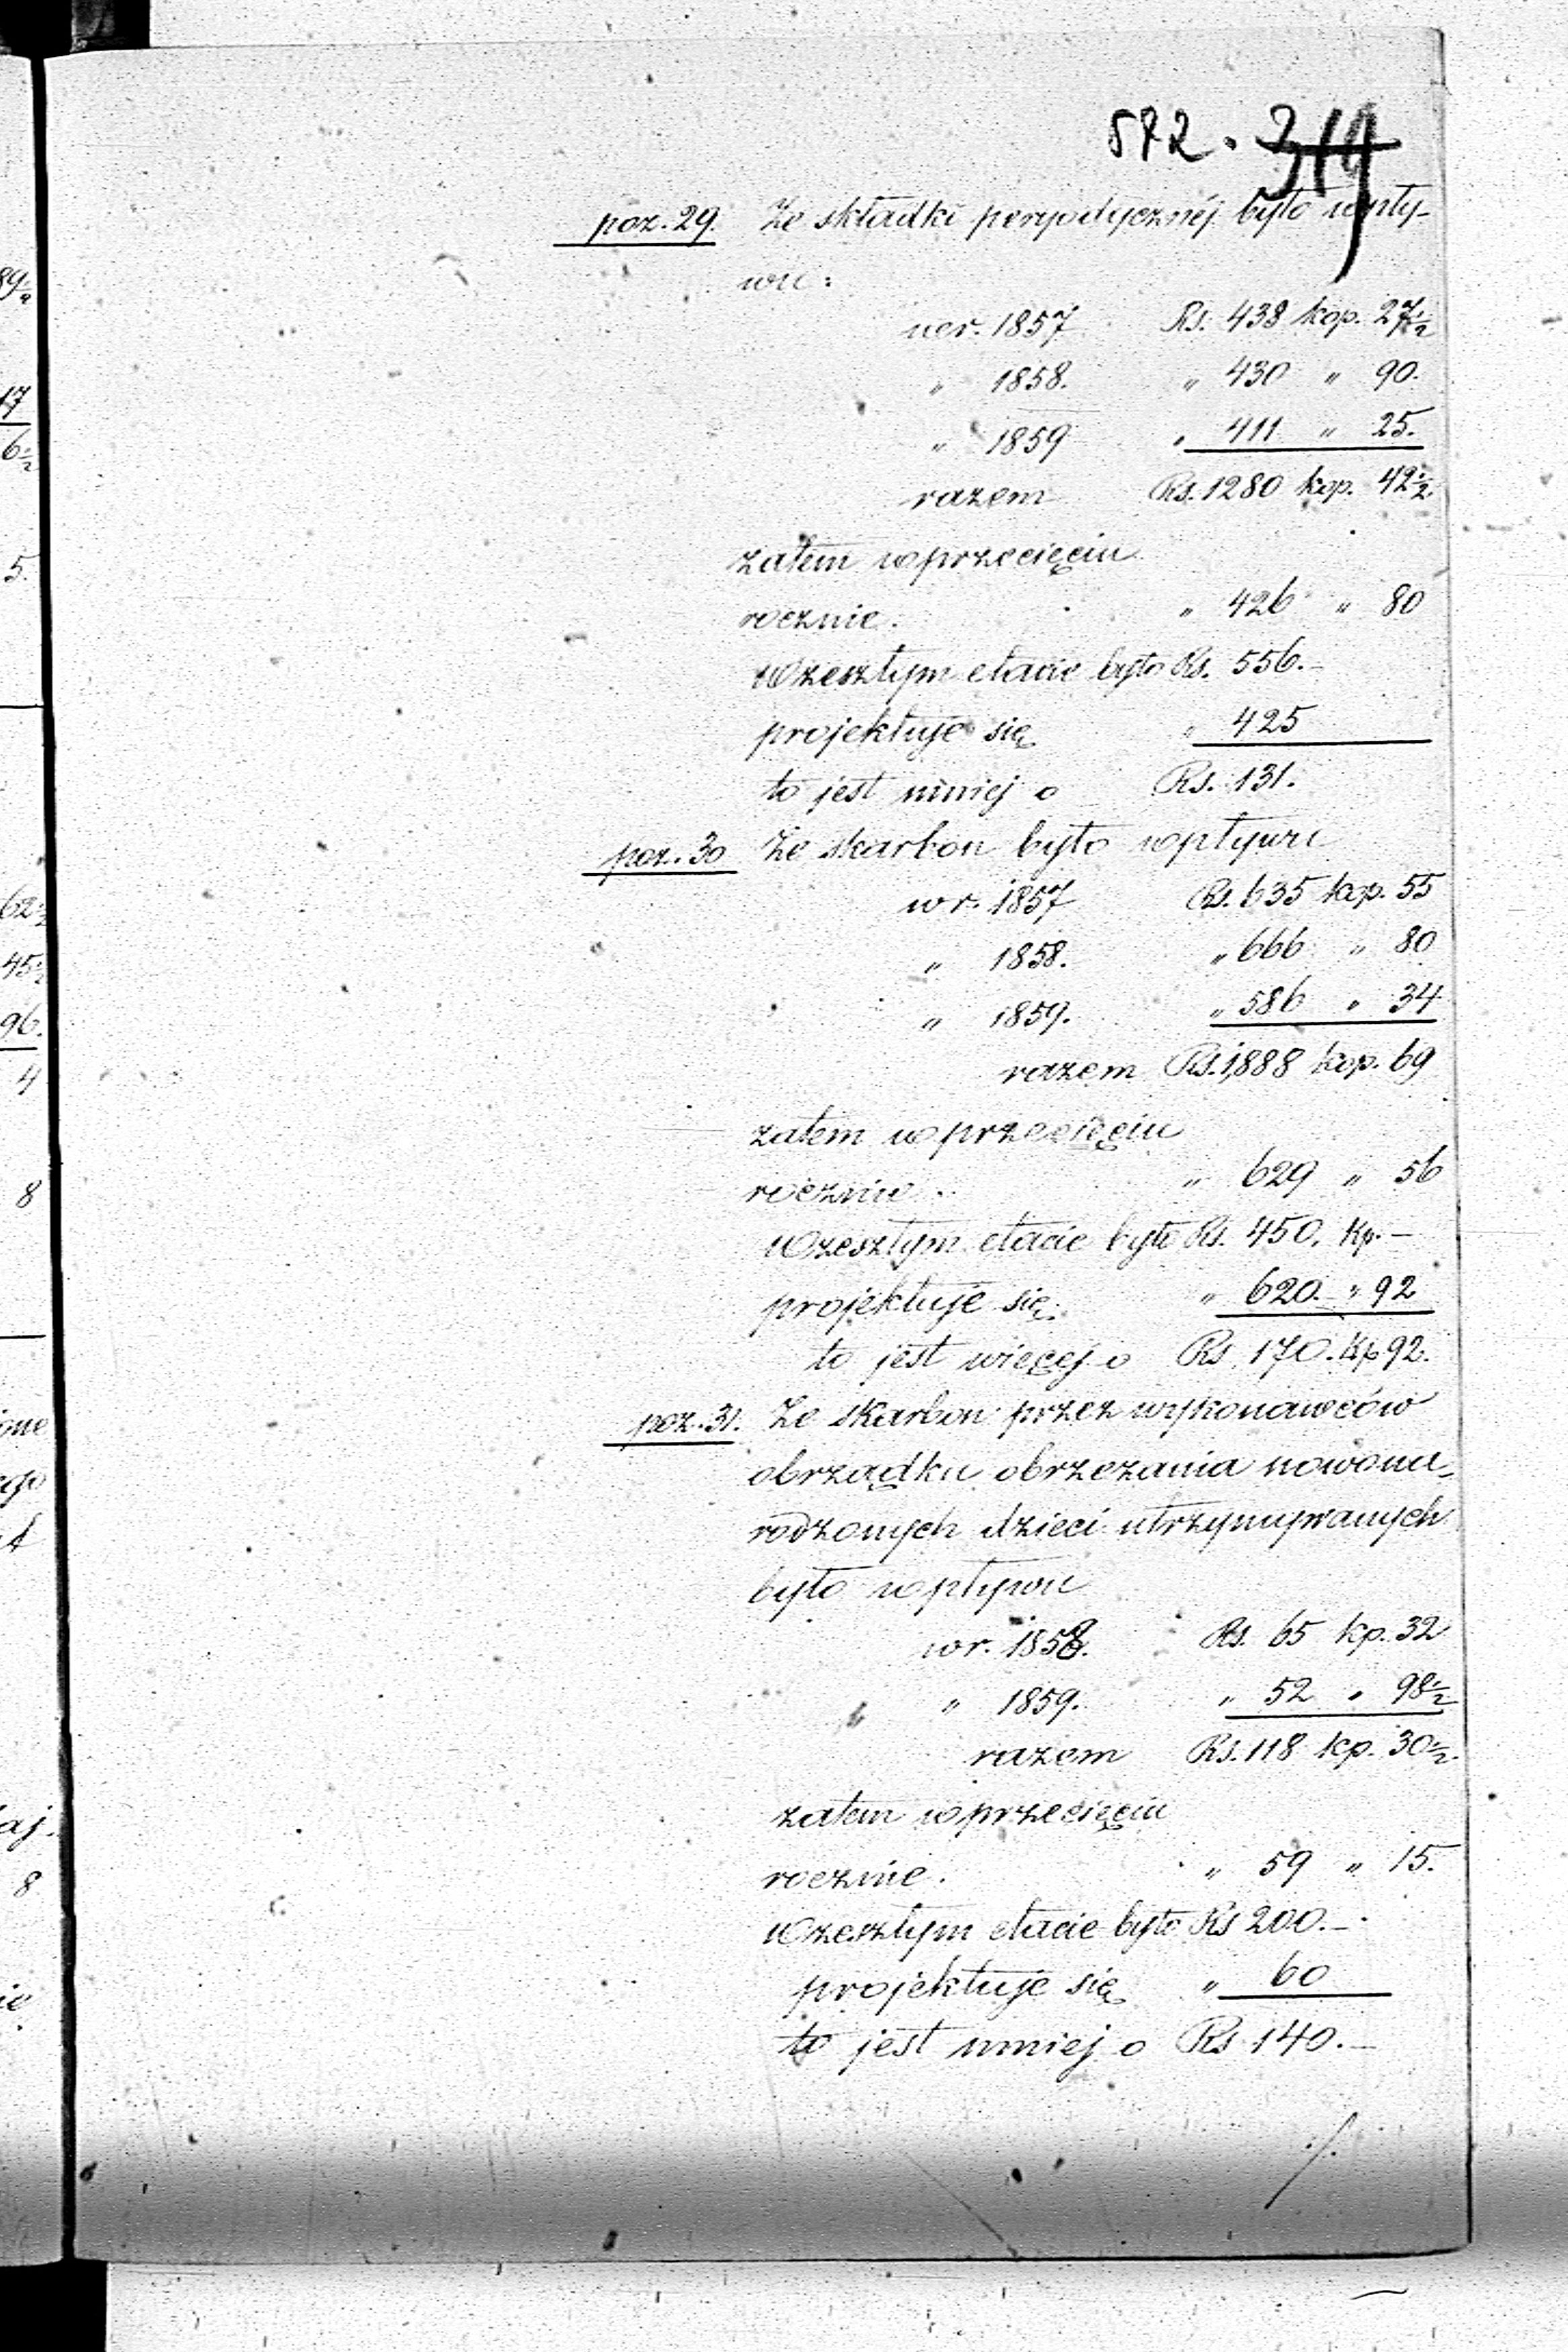 572. 319
poz. 29. Ze składki peryodycznéj było wpły-
wu:
w r. 1857 Rs. 438 kop. 27½
" 1858. " 430 " 90.
" 1859 " 411 " 25.
razem Rs. 1280 kop. 42½.
zatem w przecięciu
rocznie. " 426 " 80
W zeszłym etacie było Rs. 556.-
projektuje się " 425
to jest mniej o Rs. 131.
poz. 30 Ze skarbon było wpływu
w r. 1857 Rs. 635 kop. 55
" 1858. " 666 " 80
" 1859. " 586 " 34
razem Rs. 1,888 kop. 69
zatem w przecięciu
rocznie. " 629 " 56
W zeszłym etacie było Rs. 450. kp. -
projektuje się. " 620. " 92
to jest więcej o Rs. 170. kp 92.
poz. 31. Ze skarbon przez wykonawców
obrządku obrzezania nowona-
rodzonych dzieci utrzymywanych
było wpływu
w r. 1858. Rs. 65 kp. 32
" 1859. " 52 " 98½
razem Rs. 118 kp. 30½.
zatem w przecięciu
rocznie. " 59 " 15.
W zeszłym etacie było Rs 200.-
projektuje się " 60
to jest mniej o Rs 140.-
./.